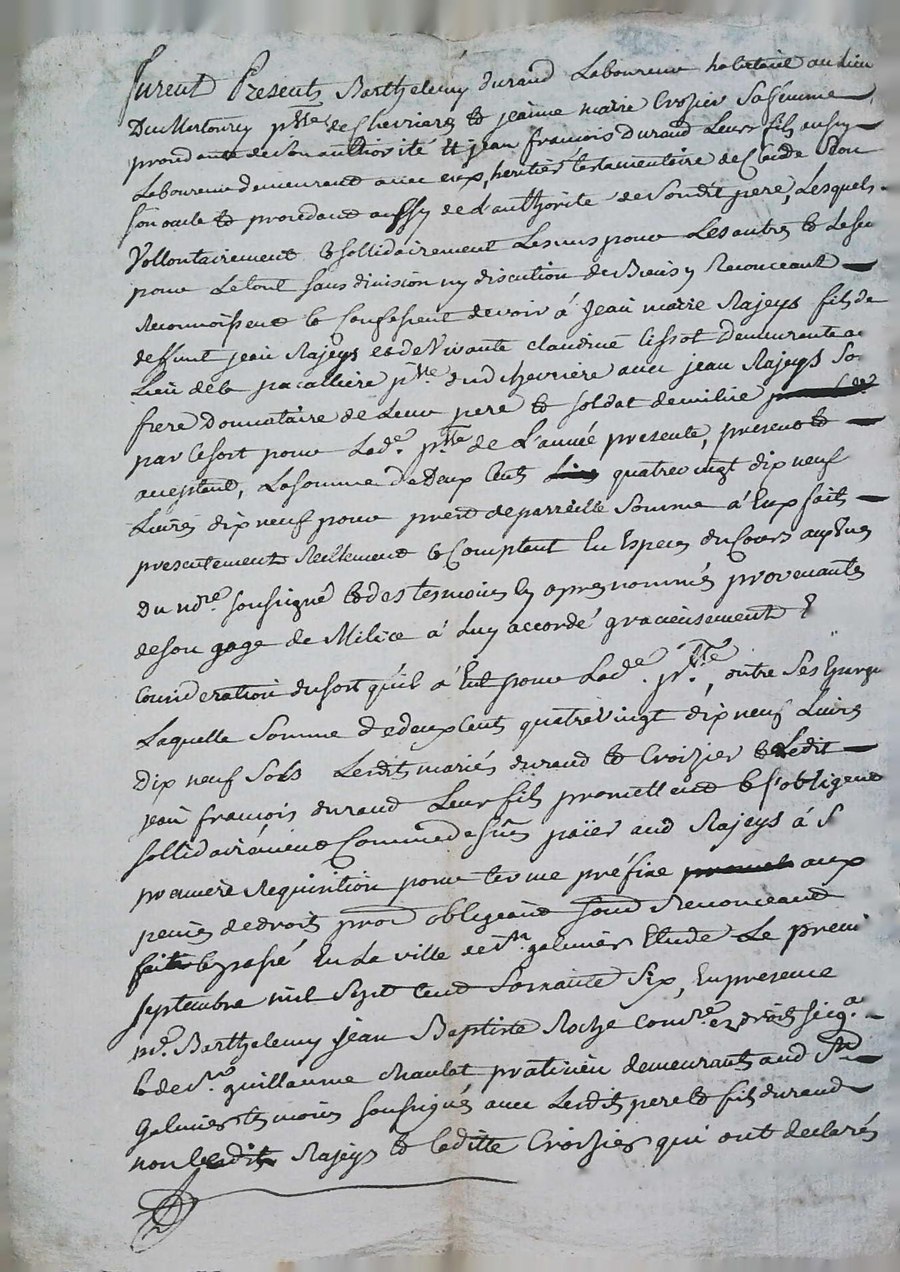 furent Presents Barthelemy durand Laboureur habitant au Lieu
Du Mertourey psse de Chevrieres et jeanne marie Crozier Sa femme
procedante de son authorité et jean françois Durand Leur fils aussy
Laboureur demeurant avec eux, heritier testamentaire de Claude
son oncle et procedant aussy de L'authorité de Son dit pere, Lesquels
Vollontairement et sollidairement Les uns pour Les autres et Le seul
pour Le tout sans division ny discution de Biens y Renonceant
Reconnoissent et Confessent devoir à Jean marie Rajeys fils de
deffunt jean Rajeys et de Vivante claudine tissot Demeurante au
Lieu de la pacalliere psse dud chevriere avec jean Rajeys So
frere Donnataire de Leur pere et soldat de milice
par Le sort pour Lade. psse de L'année presente, present et
aceptant, La somme de Deux Cents quatre vingt dix neuf
Livres dix neuf pour prest de parreille Somme à Eux fait
presentement Reellement et Comptant En Especes du Cours aux yeux
Du nore. soussigné et des tesmoins cy apres nommés provenante
de son gage de Milice à Luy accordé gracieusement &
Consideration du sort qu'il à Eut pour Lade. psse, outre Ses Epargn
Laquelle Somme de deux Cents quatre Vingt dix neuf Livres
Dix neuf Sols Lesdits mariés durand et Croizier et Ledit
jean francois durand Leur fils promettent et s'obligent
sollidairément Comme dessus païer aud Rajeys à S
premiere Requisition pour terme préfixe aux
peines de droit prom obligeant soud Renonceand
fait et passé En La ville de St galmier Etude Le premi
septembre mil Sept Cent Soixante Six, En presence
mr. Barthelemy Jean Baptiste Roche Conore. es droits
et de Sr guillaume Chaulat praticien demeurants aud St
Galmier tesmoins soussignés avec Lesdits pere et fils durand
non Ledit Rajeys et Laditte Croizier qui ont declarés